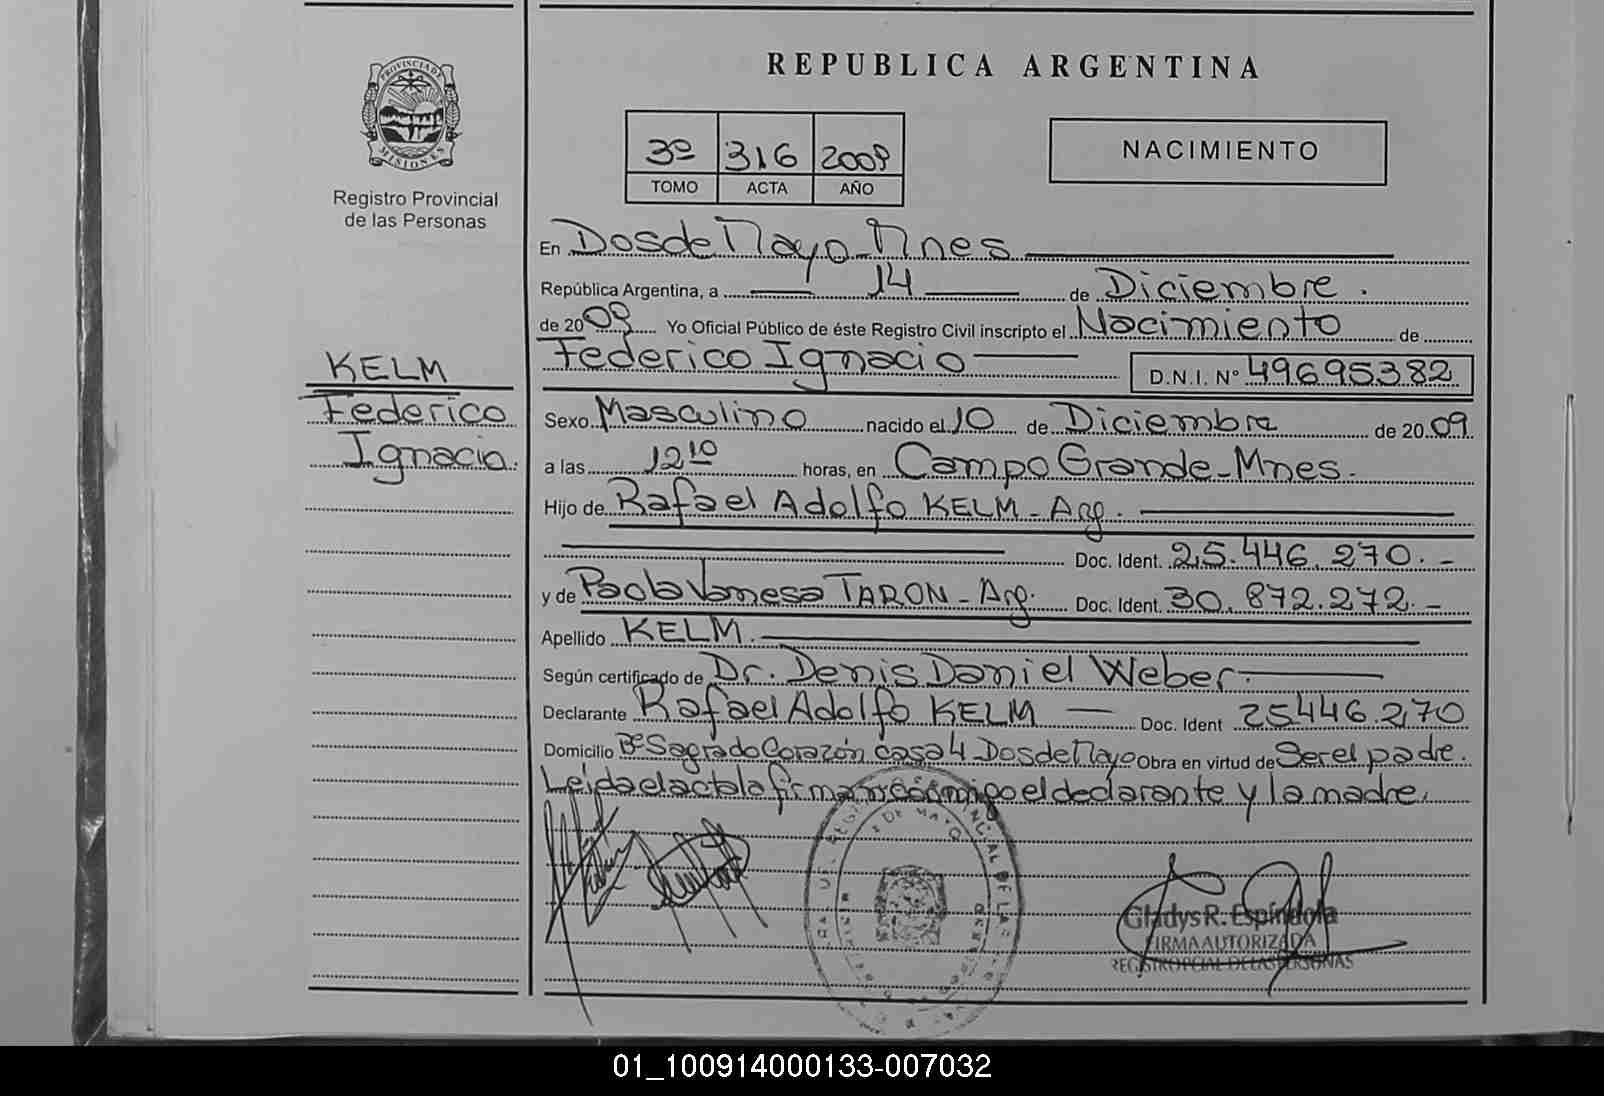 PROVINCIA DE
MISIONES
Registro Provincial
de las Personas
KELM
Federico
Ignacio.
REPUBLICA ARGENTINA
3º 316 2009
TOMO ACTA AÑO
NACIMIENTO
En Dos de Mayo - Mnes
República Argentina, a 14 de Diciembre.
de 2009 Yo Oficial Público de éste Registro Civil inscripto el Nacimiento de
Federico Ignacio D.N.I. Nº 49695382
Sexo Masculino nacido el 10 de Diciembre de 2009
a las 12 10 horas, en Campo Grande - Mnes.
Hijo de Rafael Adolfo KELM - Arg.
Doc. Ident. 25.446.270.-
y de Paola Vanesa TARON - Arg. Doc. Ident. 30.872.272.-
Apellido KELM.
Según certificado de Dr. Denis Daniel Weber.
Declarante Rafael Adolfo KELM — Doc. Ident 25446270
Domicilio Bº Sagrado Corazón casa 4 Dos de Mayo Obra en virtud de Ser el padre.
Leida el acta la firman conmigo el declarante y la madre.
2 DE MAYO
Gladys R. Espíndola
FIRMA AUTORIZADA
REGISTRO PCIAL DE LAS PERSONAS
01_100914000133-007032